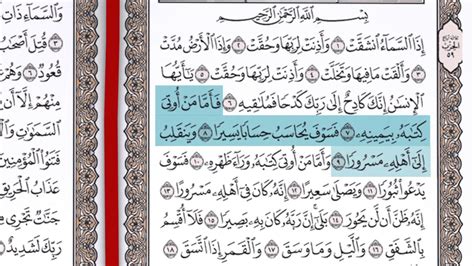 بِسْمِ ٱللَّهِ ٱلرَّحْمَٰنِ ٱلرَّحِيمِ
إِذَا ٱلسَّمَآءُ ٱنشَقَّتْ ١ وَأَذِنَتْ لِرَبِّهَا وَحُقَّتْ ٢ وَإِذَا ٱلْأَرْضُ مُدَّتْ
٣ وَأَلْقَتْ مَا فِيهَا وَتَخَلَّتْ ٤ وَأَذِنَتْ لِرَبِّهَا وَحُقَّتْ ٥ يَٰٓأَيُّهَا
ٱلْإِنسَٰنُ إِنَّكَ كَادِحٌ إِلَىٰ رَبِّكَ كَدْحًا فَمُلَٰقِيهِ ٦ فَأَمَّا مَنْ أُوتِىَ
كِتَٰبَهُۥ بِيَمِينِهِۦ ٧ فَسَوْفَ يُحَاسَبُ حِسَابًا يَسِيرًا ٨ وَيَنقَلِبُ
إِلَىٰٓ أَهْلِهِۦ مَسْرُورًا ٩ وَأَمَّا مَنْ أُوتِىَ كِتَٰبَهُۥ وَرَآءَ ظَهْرِهِۦ ١٠ فَسَوْفَ
يَدْعُوا۟ ثُبُورًا ١١ وَيَصْلَىٰ سَعِيرًا ١٢ إِنَّهُۥ كَانَ فِىٓ أَهْلِهِۦ مَسْرُورًا ١٣
إِنَّهُۥ ظَنَّ أَن لَّن يَحُورَ ١٤ بَلَىٰٓ إِنَّ رَبَّهُۥ كَانَ بِهِۦ بَصِيرًا ١٥ فَلَآ أُقْسِمُ
بِٱلشَّفَقِ ١٦ وَٱلَّيْلِ وَمَا وَسَقَ ١٧ وَٱلْقَمَرِ إِذَا ٱتَّسَقَ ١٨
الحزب
٥٩
وَٱلسَّمَآءِ ذَاتِ
٣ قُتِلَ أَصْحَٰبُ
قُعُودٌ ٦
مِنْهُمْ إِلَّآ أَن
ٱلسَّمَٰوَٰتِ
فَتَنُوا۟ ٱلْمُؤْمِنِينَ
عَذَابُ ٱلْحَرِيقِ
جَنَّٰتٌ تَجْرِى
رَبِّكَ لَشَدِيدٌ